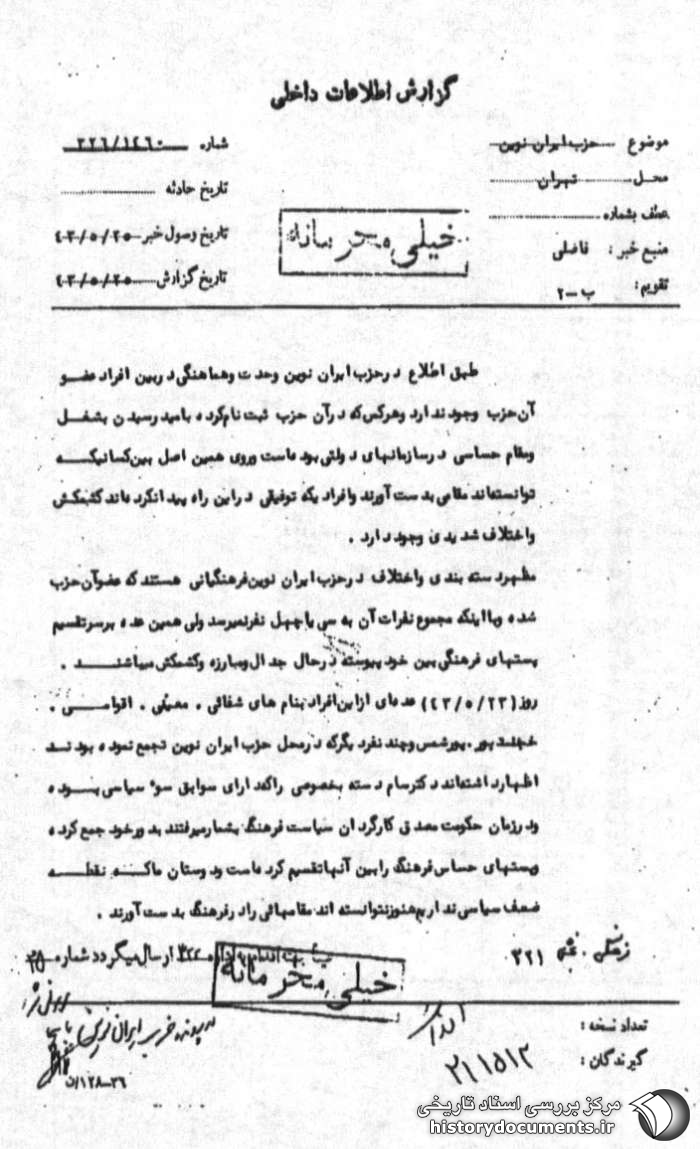 گزارش اطلاعات داخلی
موضوع حزب ایران نوین
شماره ۳۲۶/۱۴۶۰
محل تهران
تاریخ حادثه
عطف بشماره
تاریخ وصول خبر ۴۳/۵/۲۵
خیلی محرمانه
منبع خبر : فاضلی
تاریخ گزارش ۴۳/۵/۲۵
تقویم : ب-۲
طبق اطلاع درحزب ایران نوین وحدت وهماهنگی دربین افراد عضو
آن حزب وجود ندارد وهرکس که درآن حزب ثبت نام کرده بامید رسیدن بشغل
ومقام حساسی درسازمانهای دولتی بوده است وروی همین اصل بین کسانیکه
توانسته اند مقامی بدست آورند وافراد یکه توفیقی دراین راه پیدا نکرده اند کشمکش
واختلاف شدیدی وجود دارد .
مظهر دسته بندی واختلاف درحزب ایران نوین فرهنگیانی هستند که عضوآن حزب
شده وبااینکه مجموع نفرات آن به سی یا چهل نفرنمیرسد ولی همین عده برسرتقسیم
پستهای فرهنگی بین خود پیوسته درحال جدال ومبارزه وکشمکش میباشند .
روز (۴۳/۵/۲۳) عده ای ازاین افراد بنام های شفائی ، معینی ، اقوامی ،
خجسته پور ، پورشمس وچند نفر دیگرکه درمحل حزب ایران نوین تجمع نموده بودند
اظهارداشته اند دکترسام دسته بخصوصی راکه دارای سوابق سوء سیاسی بوده
ودرزمان حکومت مصدق کارگردان سیاست فرهنگ بشمارمیرفتند بدورخود جمع کرده
وپستهای حساس فرهنگ رابین آنها تقسیم کرده است ودوستان ماکه نقطه
ضعف سیاسی نداریم هنوزنتوانسته اند مقامهائی رادرفرهنگ بدست آورند .
۳۲۱
جهت اقدام به اداره ۳۲۲ ارسال میگردد شماره ۳۵
خیلی محرمانه
تعداد نسخه :
درپرونده حزب ایران نوین
گیرندگان :
۲۱۱۵۱۲
۳۶-۱۲۸/ن
مرکز بررسی اسناد تاریخی
historydocuments.ir